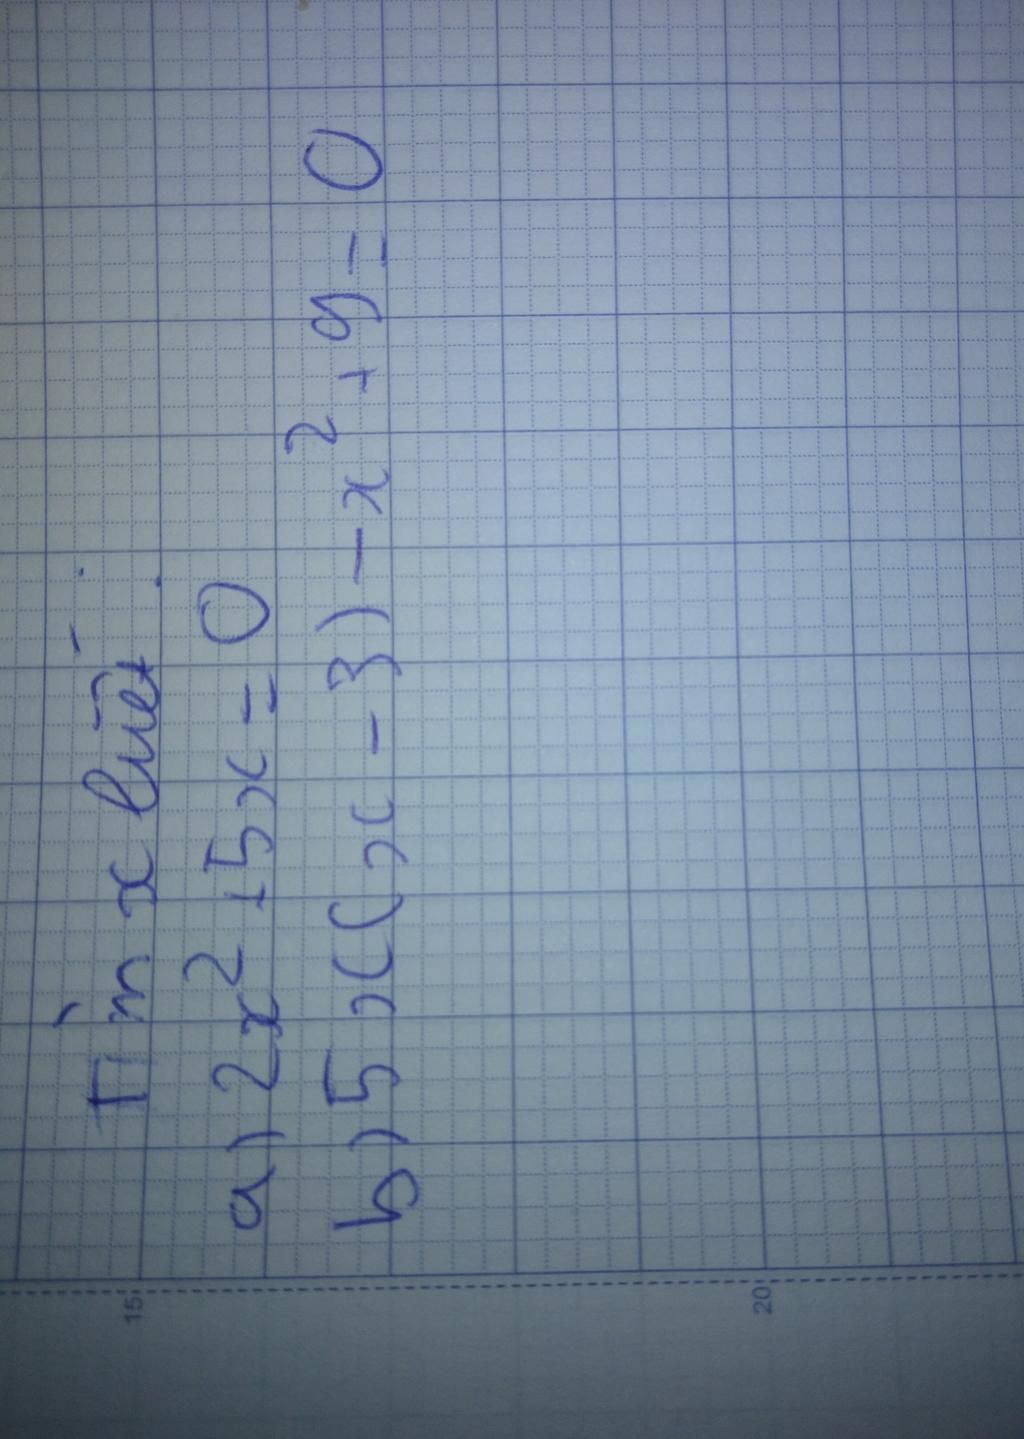 Tìm x biết:
a) 2x² + 5x = 0
b) 5x(x - 3) - x² + 9 = 0
15
20